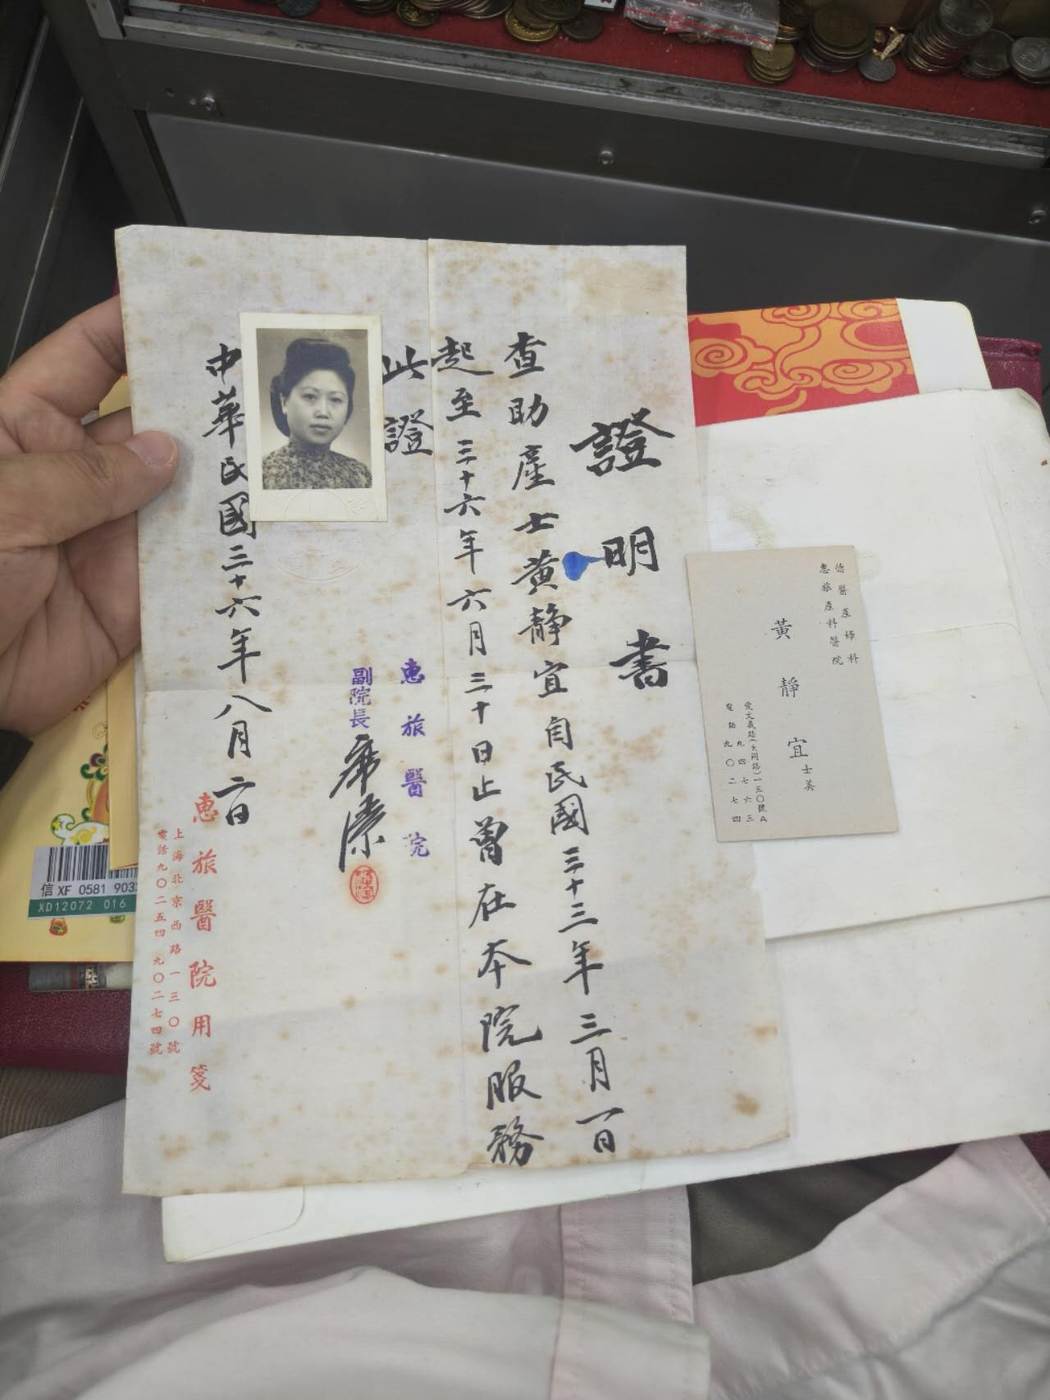 證明書
查助產士黃靜宜自民國三十三年三月一日
起至三十六年六月三十日止曾在本院服務
此證
惠旅醫院
副院長
中華民國三十六年八月一日
惠旅醫院用箋
上海北京西路一三〇號
電話九〇二五四 九〇二七四號
德醫產婦科
惠旅產科醫院
黃靜宜
士美
愛文義路(大同路)一三〇號A
電話九四七六三
九〇二七四
信 XF 0581 903
XD12072 016